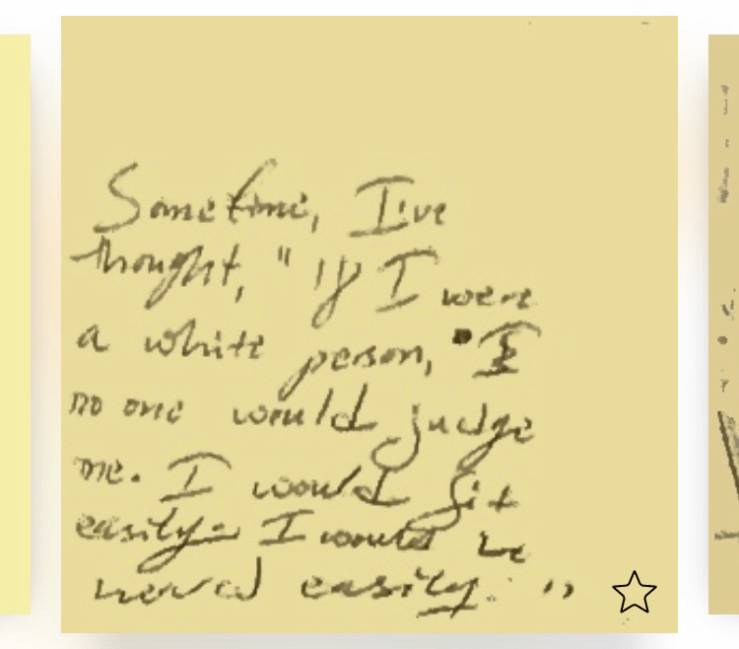 Sometime, I've
thought, "If I were
a white person,
no one would judge
me. I would fit
easily. I would be
heard easily. "